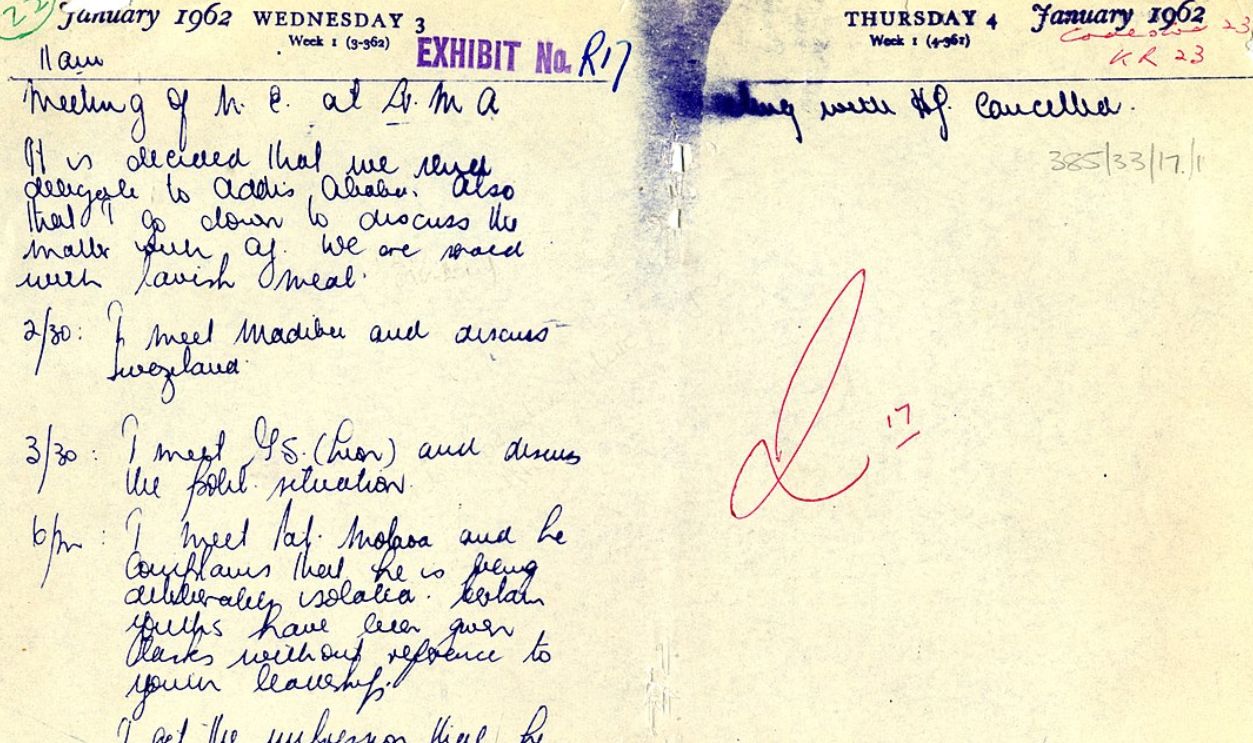 22
January 1962 WEDNESDAY 3
Week 1 (3-362)
EXHIBIT No. R17
11am
Meeting of N. E. at
It is decided that we send
delegate to Addis Ababa. Also
that I go down to discuss the
matter with AJ. We are
with lavish meal.
2/30: I meet Madiba and discuss
Swaziland
3/30: I meet G.S. (Leon) and discuss
the polit. situation.
6pm: I meet Pat. Molaoa and he
complains that he is being
deliberately isolated. Certain
youths have been given
tasks without reference to
youth leadership.
I get the impression that he
THURSDAY 4 January 1962
Week 1 (4-361)
23
KR 23
with AJ. Cancelled.
385/33/17/1
17